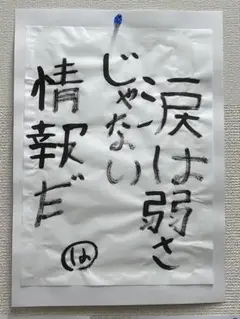 涙は弱さ
じゃない
情報だ
は